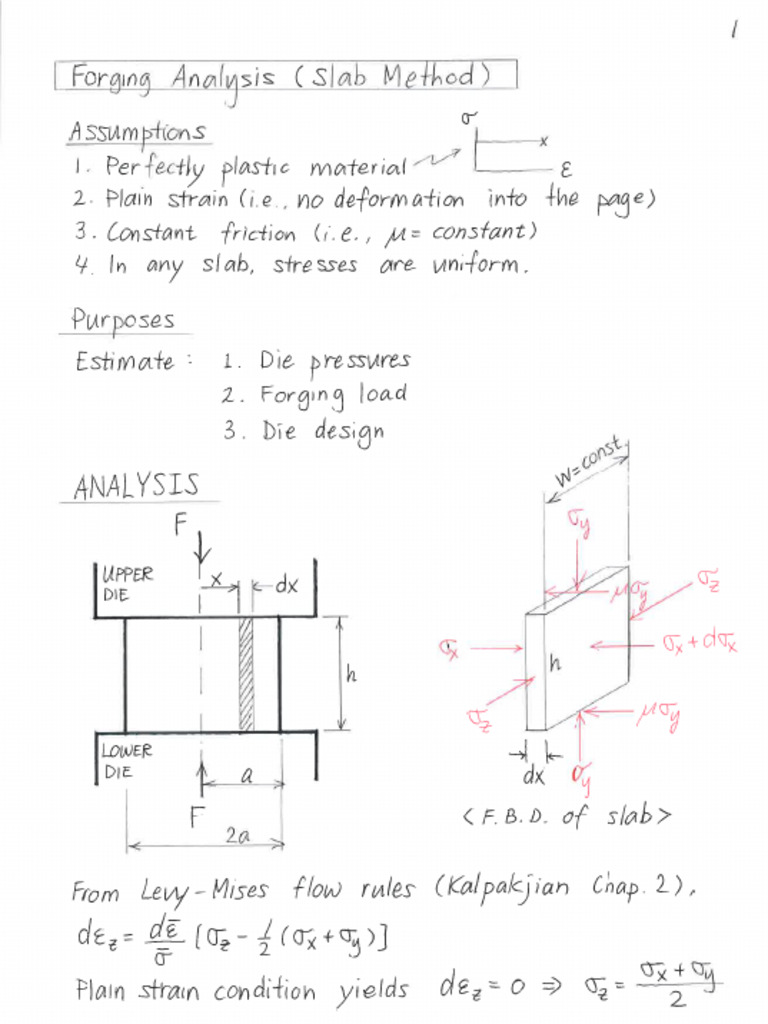 1
Forging Analysis (Slab Method)
Assumptions
σ
1. Perfectly plastic material
x
ε
2. Plain strain (i.e., no deformation into the page)
3. Constant friction (i.e., μ = constant)
4. In any slab, stresses are uniform.
Purposes
Estimate : 1. Die pressures
2. Forging load
3. Die design
W=const.
ANALYSIS
F
σy
UPPER
DIE
x
dx
μσy
σz
σx
h
σx+dσx
h
σz
μσy
LOWER
DIE
a
dx
σy
F
<F.B.D. of slab>
2a
From Levy-Mises flow rules (Kalpakjian Chap. 2),
dεz = dε̄/σ̄ [σz - 1/2 (σx+σy)]
Plain strain condition yields dεz = 0 ⇒ σz = (σx + σy)/2